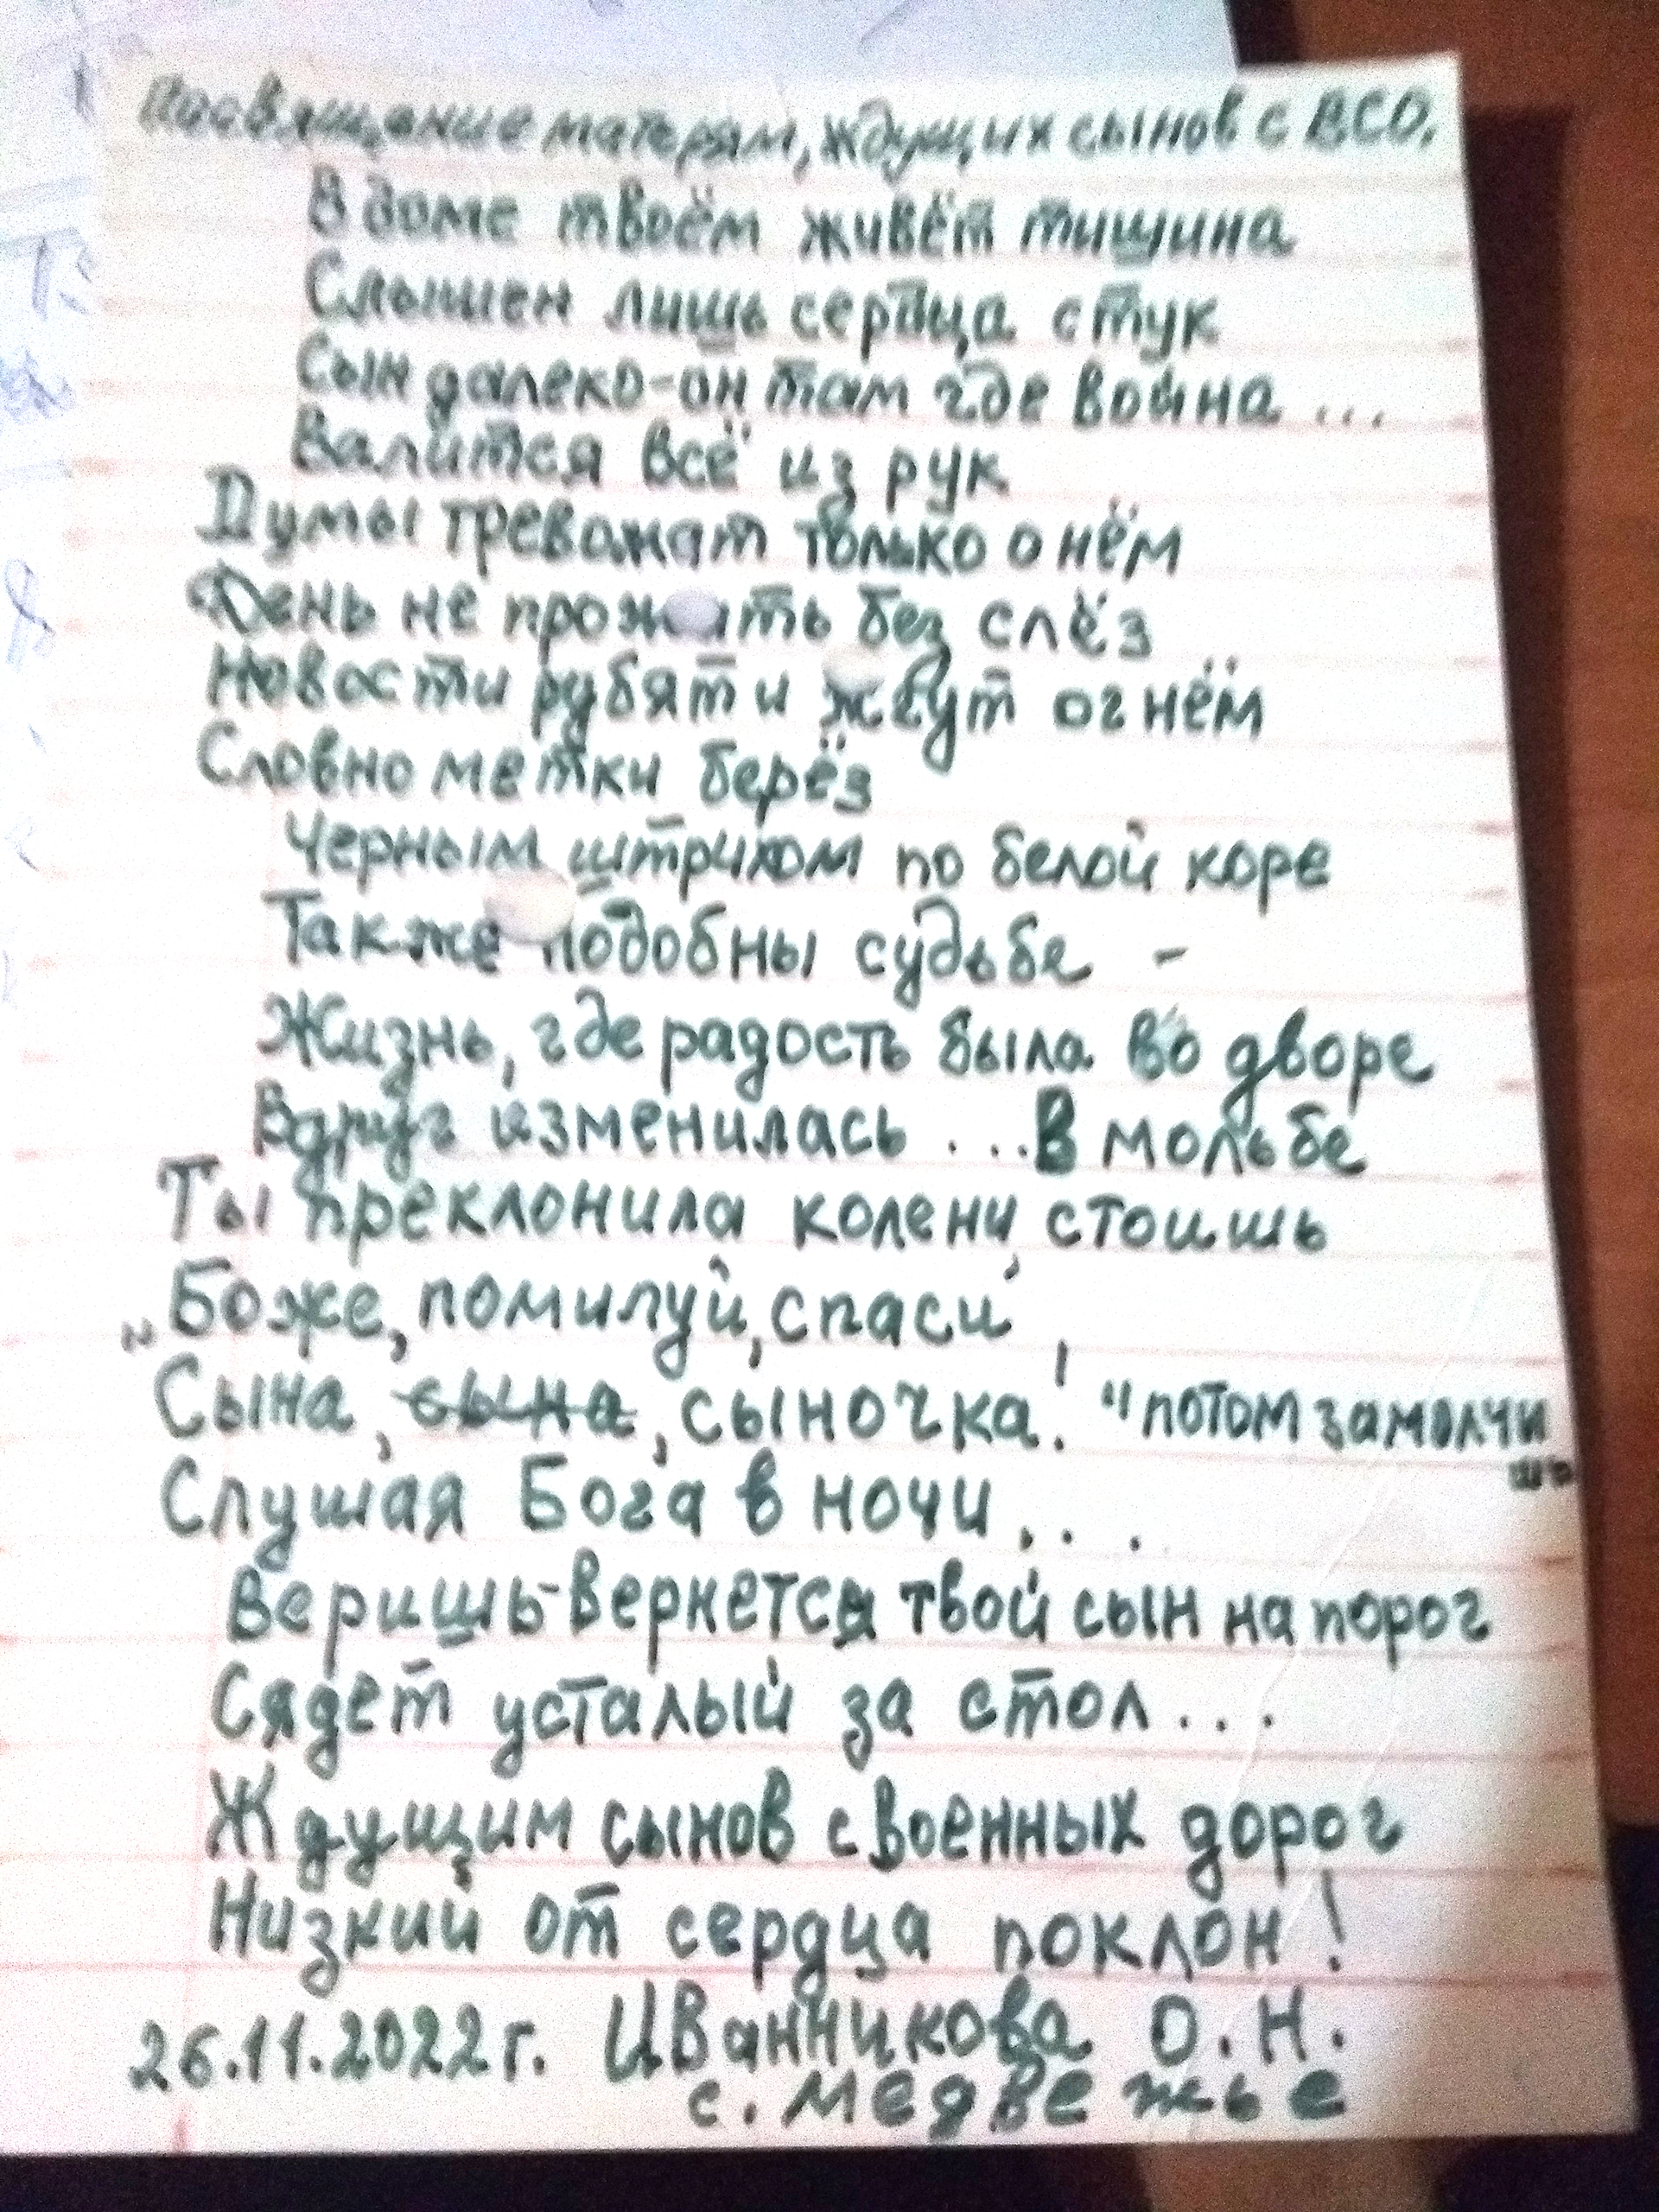 Посвящение матерям, ждущих сынов с ВСО.
В доме твоём живёт тишина
Слышен лишь сердца стук
Сын далеко-он там где война...
Валится всё из рук
Думы тревожат только о нём
День не прожить без слёз
Новости рубят и жгут огнём
Словно метки берёз
Черным штрихом по белой коре
Также подобны судьбе -
Жизнь, где радость была во дворе
Вдруг изменилась ...в мольбе
Ты преклонила колени, стоишь
„Боже, помилуй, спаси,
Сына, сына, сыночка! "потом замолчи
шь
Слушая Бога в ночи...
Веришь-вернется твой сын на порог
Сядет усталый за стол...
Ждущим сынов с военных дорог
Низкий от сердца поклон!
26.11.2022г. Иванникова О.Н.
с. Медвежье